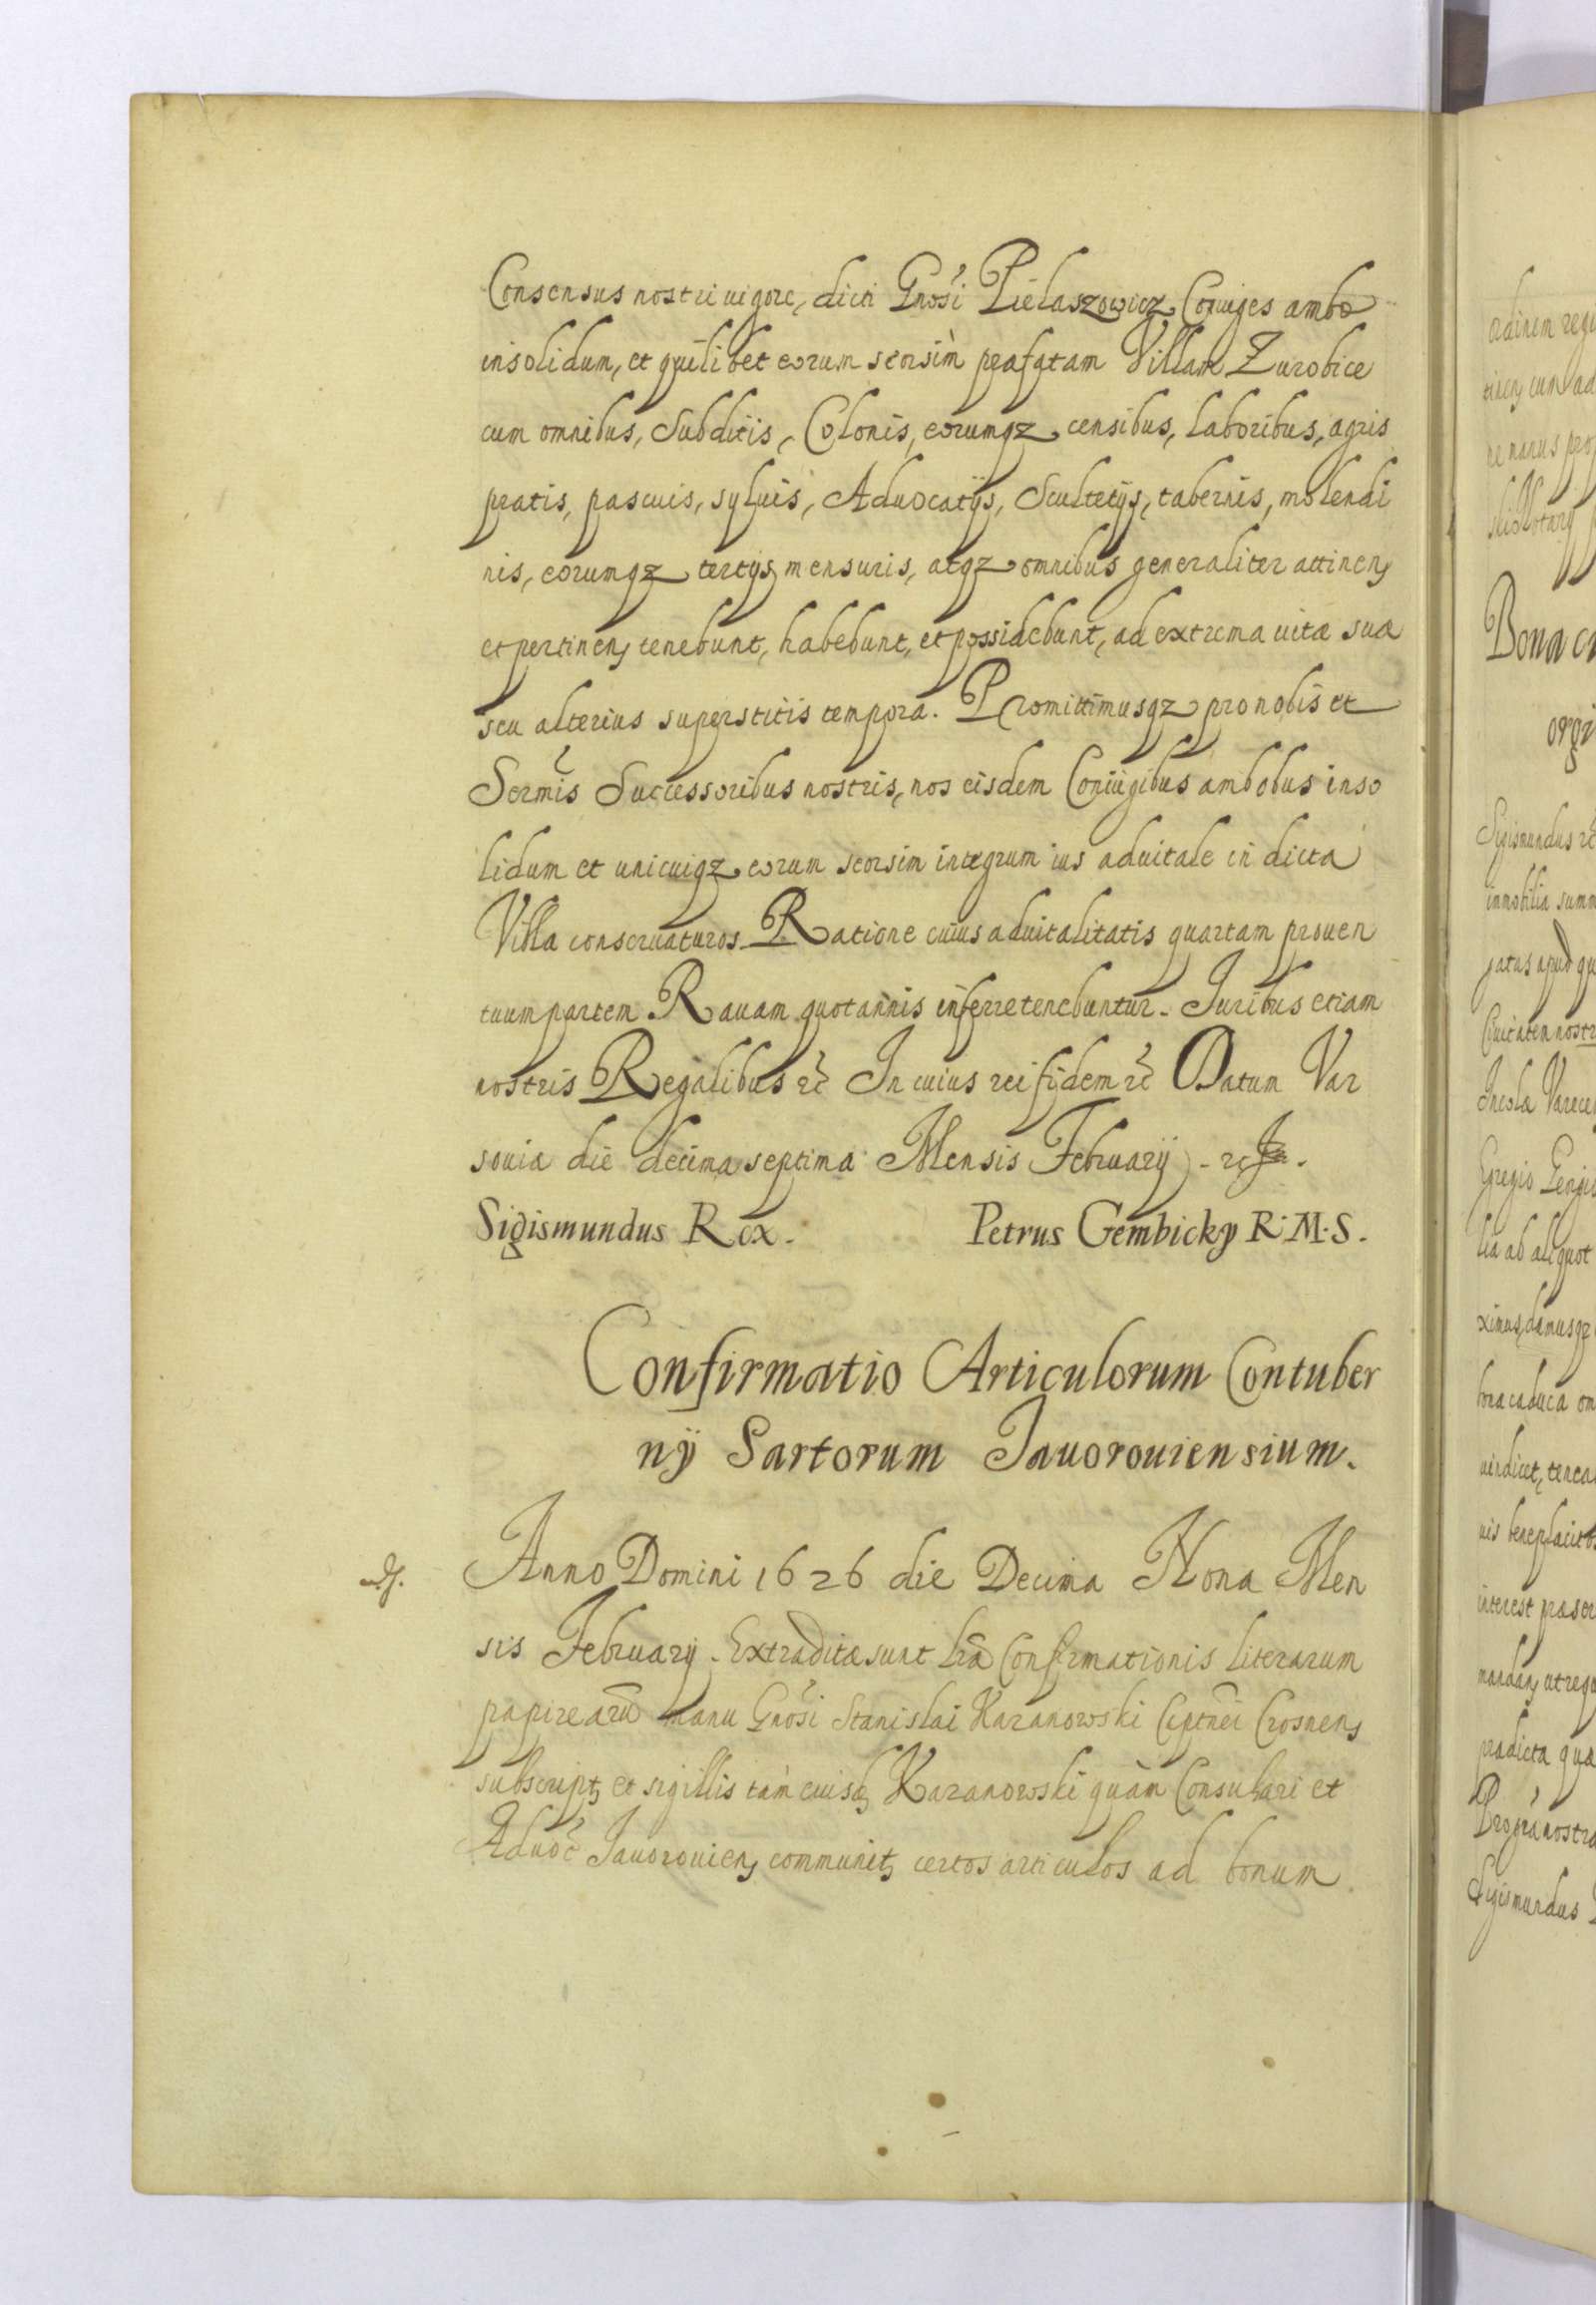 Consensus nostri uigore, dicti Gnosi Pielaszowicz Coniuges ambo
insolidum, et quilibet eorum seorsim præfatam Villam Zurobice
cum omnibus, Subditis, Colonis, eorumqz censibus, laboribus, agris
pratis, pascuis, syluis, Aduocatijs, Scultetijs, tabernis, molendi
nis, eorumqz tertijs mensuris, atqz omnibus generaliter attinen
et pertinen tenebunt, habebunt, et possidebunt, ad extrema uitæ suæ
seu alterius superstitis tempora. Promittimusqz pro nobis et
Sermis Successoribus nostris, nos eisdem Coniugibus ambobus inso
lidum et unicuiqz eorum seorsim integrum ius aduitale in dicta
Villa conseruaturos. Ratione cuius aduitalitatis quartam prouen
tuum partem Rauam quotannis inferre tenebuntur. Iuribus etiam
nostris Regalibus etc In cuius rei fidem etc Datum Var
souiæ die decima septima Mensis February
Sigismundus Rex. Petrus Gembicky R. M. S.
Confirmatio Articulorum Contuber
nij Sartorum Iauorouiensium.
Anno Domini 1626 die Decima Nona Men
sis February. Extraditæ sunt lræ Confirmationis literarum
papirearu manu Gnosi Stanislai Kazanowski Cptnei Crosnen
subscript et sigillis tam eiusd Kazanowski quàm Consulari et
Aduoc Iauorouien communit certos articulos ad bonum
Bona ca
Sigismundus etc
immobilia summ
Ciuitatem nostr
lia ab aliquot
bona caduca om
uis beneplacito
prædicta qua
Sigismundus